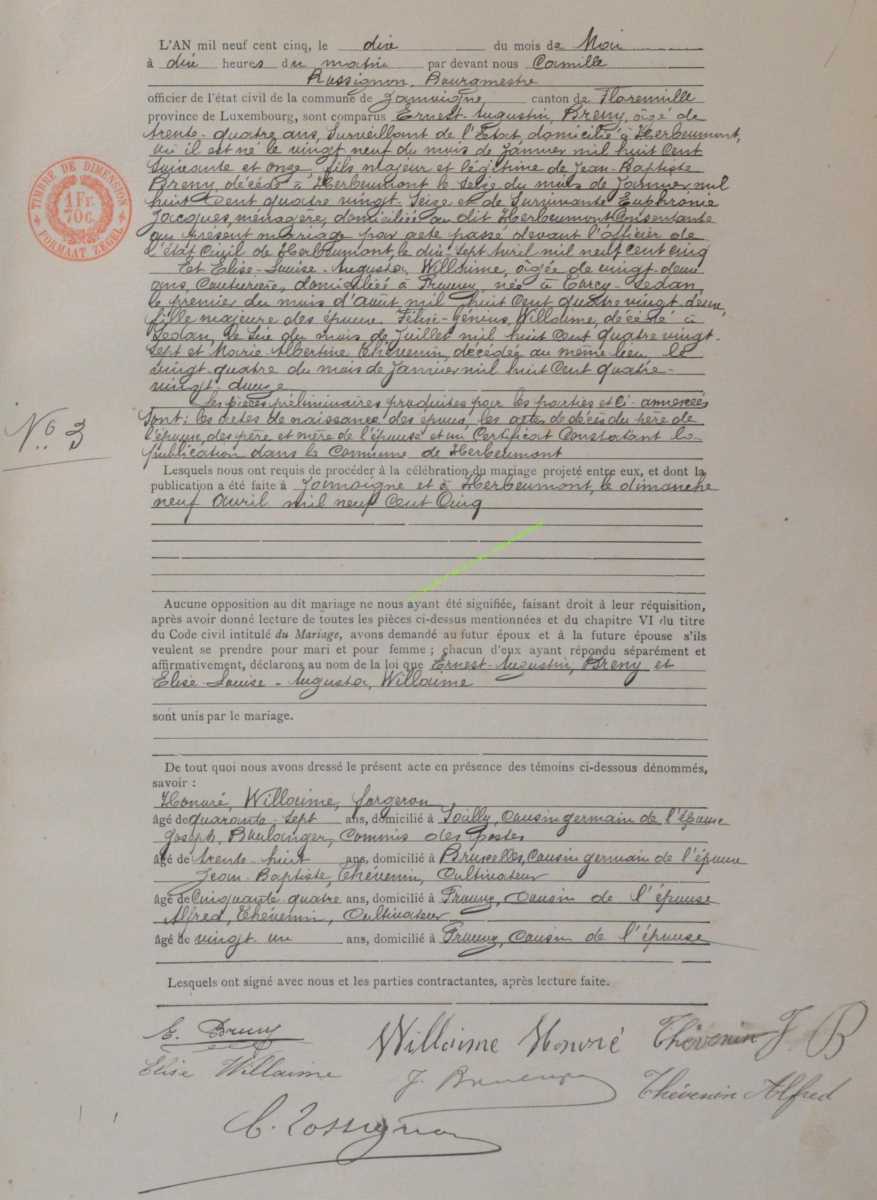 L'AN mil neuf cent cinq, le dix du mois de Mai
à dix heures du matin par devant nous Camille
Rossignon, Bourgmestre
officier de l'état civil de la commune de Jamoigne, canton de Florenville
province de Luxembourg, sont comparus Ernest-Augustin, Breny, âgé de
trente-quatre ans, Surveillant de l'État, domicilié à Herbeumont,
où il est né le vingt neuf du mois de Janvier mil huit Cent
Soixante et onze, fils majeur et légitime de Jean-Baptiste
Breny, décédé à Herbeumont le Seize du mois de Janvier mil
huit Cent quatre vingt-Seize et de Survivante Euphronie
Jacques, ménagère, domiciliée au dit Herbeumont Consentante
au présent mariage par acte passé devant l'officier de
l'état Civil de Herbeumont, le dix Sept Avril mil neuf cent cinq
Et Elise-Louise-Augusta, Willaime, âgée de vingt deux
ans, Couturière, domiciliée à Prouvy, née à Torcy-Sedan,
le premier du mois d'août mil huit Cent quatre vingt deux,
fille majeure des époux Félix-Génius, Willaime, décédé à
Sedan, le Six du mois de Juillet mil huit Cent quatre vingt-
Sept et Marie Albertine Thévenin, décédée au même lieu le
vingt quatre du mois de Janvier mil huit Cent quatre-
vingt-douze
Les pièces préliminaires produites par les parties et ci-annexées
Sont: les actes de naissance des époux, les actes de décès du père de
l'époux, des père et mère de l'épouse et un Certificat Constatant la
publication dans la Commune de Herbeumont
Nº 3
Lesquels nous ont requis de procéder à la célébration du mariage projeté entre eux, et dont la
publication a été faite à Jamoigne et à Herbeumont, le dimanche
neuf avril mil neuf Cent Cinq
TIMBRE DE DIMENSION
1 Fr.
70 c.
FORMAAT ZEGEL
Aucune opposition au dit mariage ne nous ayant été signifiée, faisant droit à leur réquisition,
après avoir donné lecture de toutes les pièces ci-dessus mentionnées et du chapitre VI du titre
du Code civil intitulé du Mariage, avons demandé au futur époux et à la future épouse s'ils
veulent se prendre pour mari et pour femme ; chacun d'eux ayant répondu séparément et
affirmativement, déclarons au nom de la loi que Ernest-Augustin, Breny et
Elise-Louise-Augusta, Willaime
sont unis par le mariage.
De tout quoi nous avons dressé le présent acte en présence des témoins ci-dessous dénommés,
savoir :
Honoré, Willaime, forgeron,
âgé de quarante-Sept ans, domicilié à Pouilly, Cousin germain de l'épouse
Joseph, Boulanger, Commis des Postes
âgé de trente-huit ans, domicilié à Bruxelles, Cousin germain de l'épouse
Jean-Baptiste, Thévenin, Cultivateur
âgé de Cinquante quatre ans, domicilié à Prouvy, Cousin de l'épouse
Alfred, Thévenin, Cultivateur
âgé de vingt un ans, domicilié à Prouvy, Cousin de l'épouse
Lesquels ont signé avec nous et les parties contractantes, après lecture faite.
E. Breny Willaime Honoré Thévenin J. B
Elise Willaime Thévenin Alfred
C. Rossignon